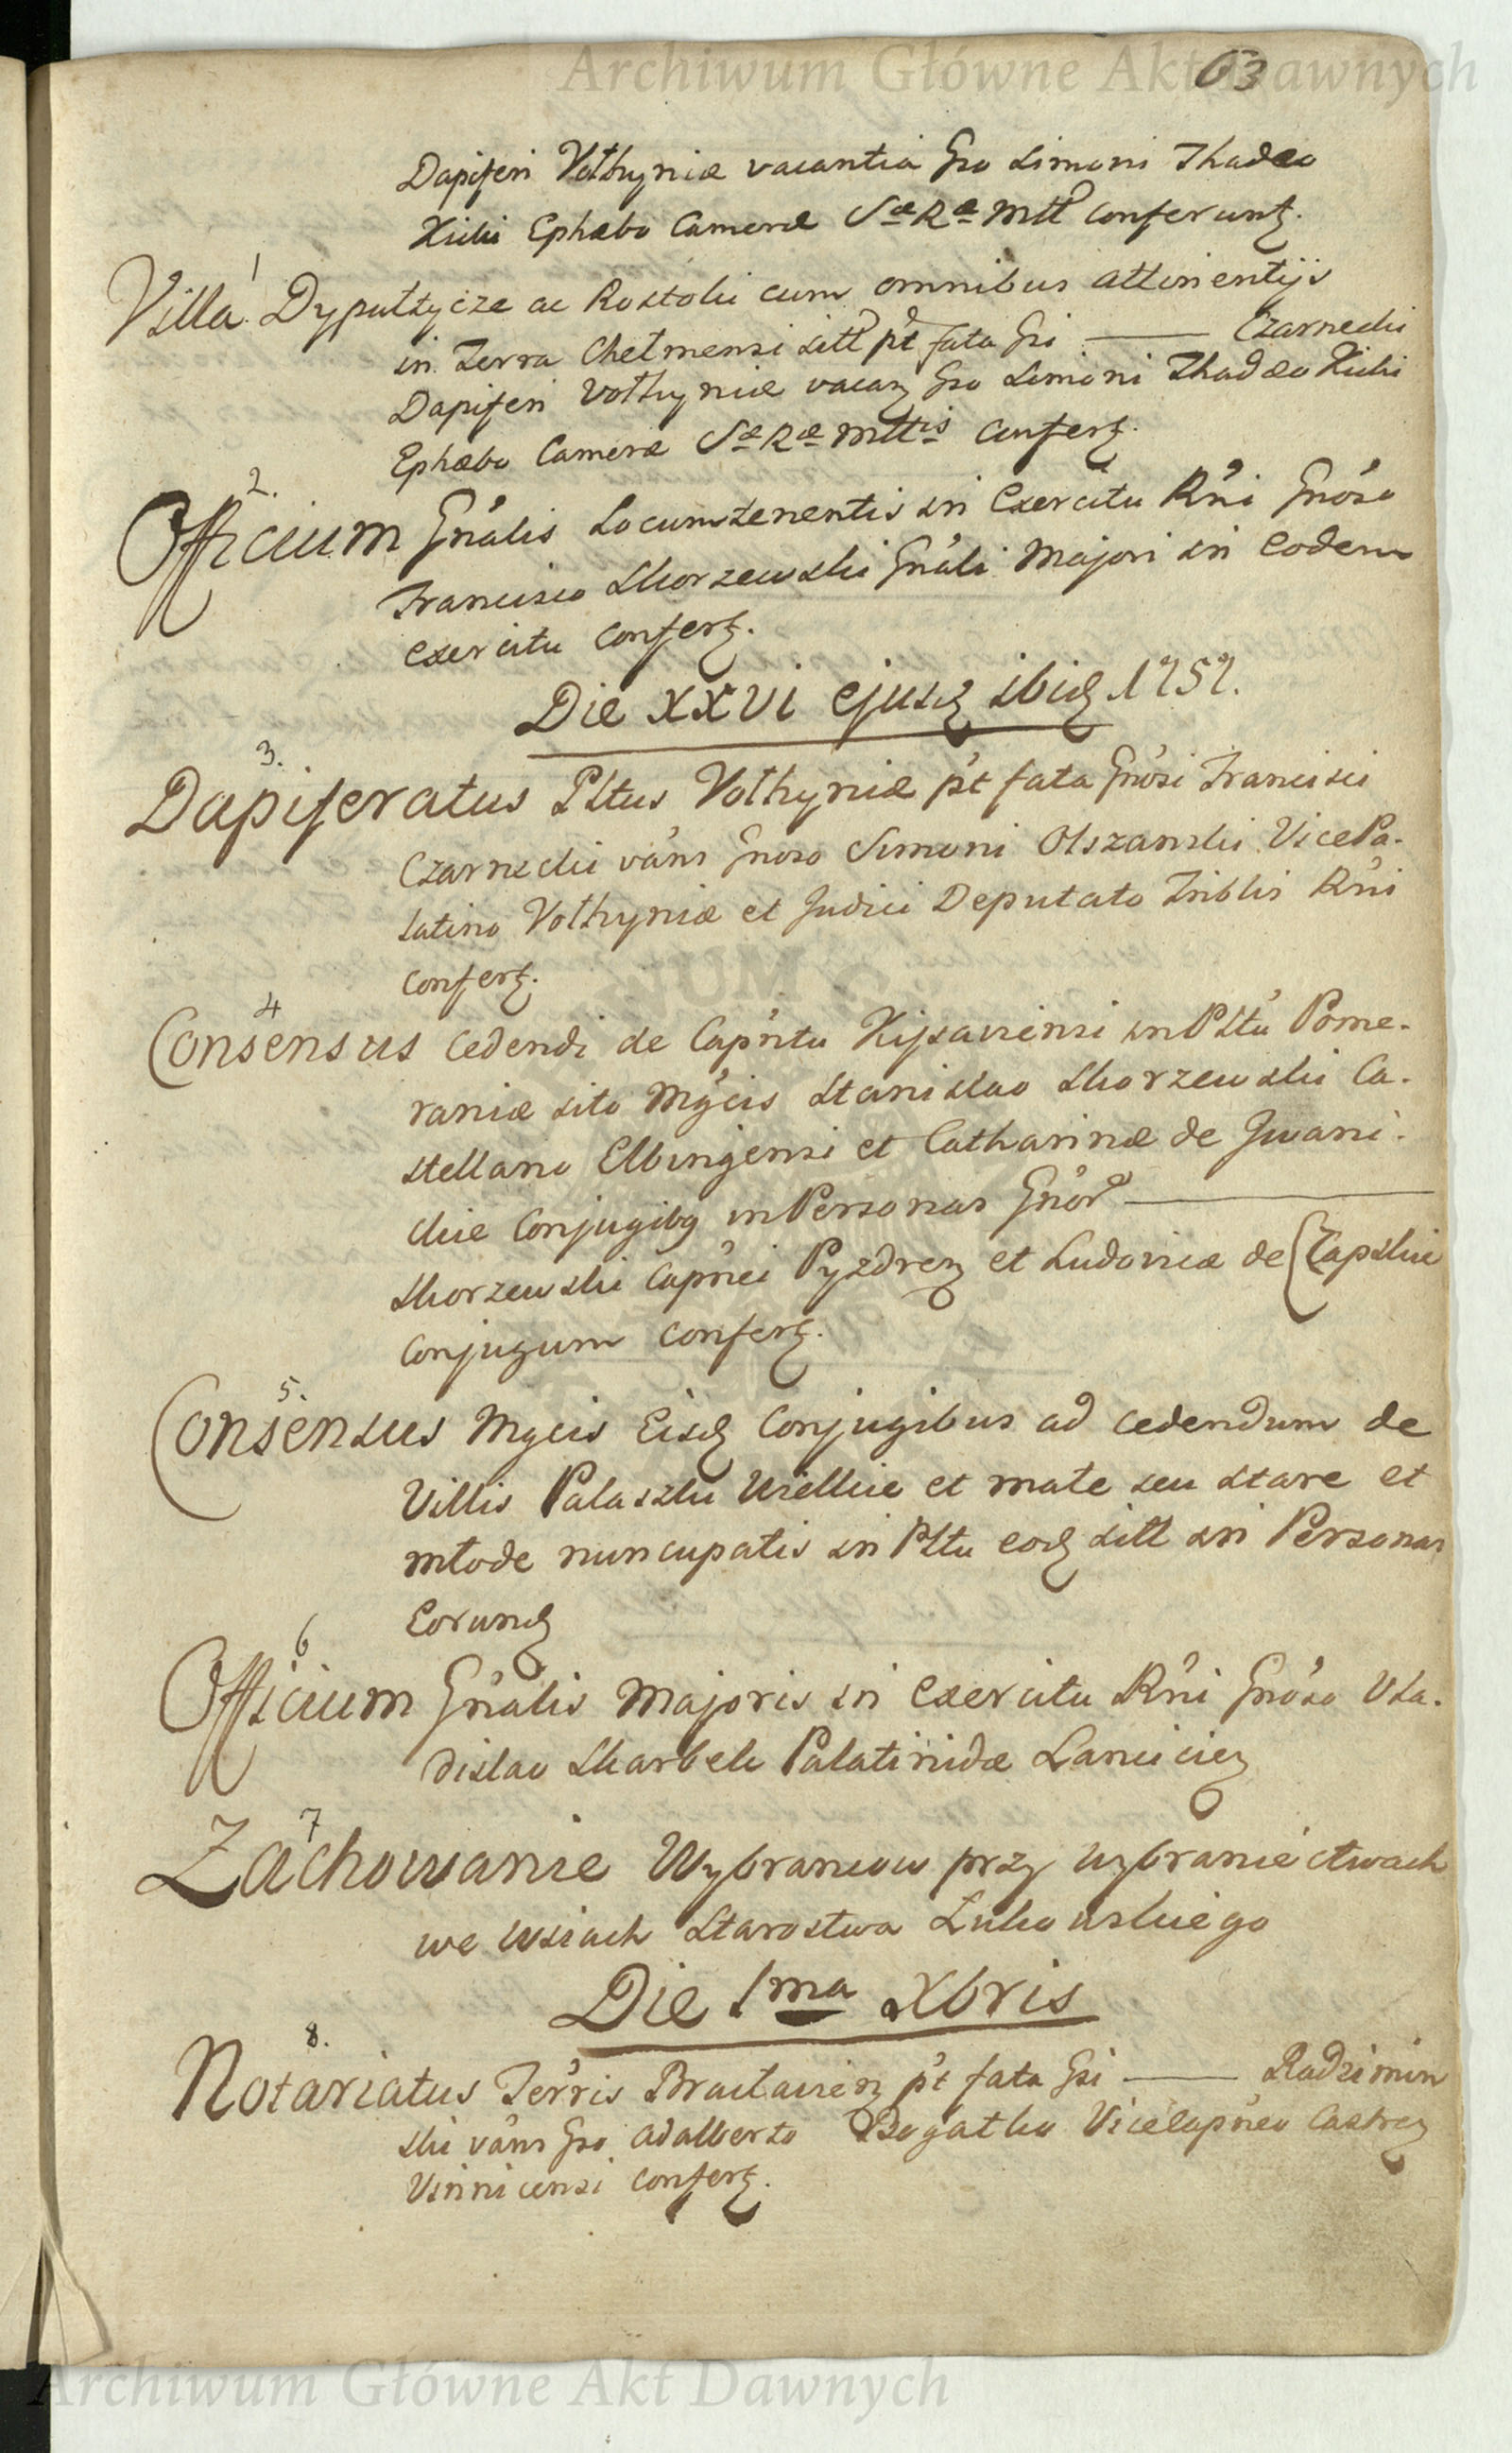 Archiwum Główne Akt Dawnych
63
Dapiferi Volhyniæ vacantia Gso Simoni Thadeo
Kicki Ephæbo Cameræ Sæ Ræ Mtt conferunt.
1
Villa Dyputtycze ac Rostoki cum omnibus attinentijs
in Terra Chelmensi sitt pt fata Gsi —— Czarnecki
Dapiferi Volhyniæ vacan Gso Simoni Thadæo Kicki
Ephæbo Cameræ Sæ Ræ Mttis confert.
2.
Officium Gnalis Locumtenentis in Exercitu Rni Gnoso
Francisco Skorzewski Gnali Majori in eodem
exercitu confert.
Die XXVI ejusd ibid 1757.
3.
Dapiferatus Pltus Volhyniæ pt fata Gnosi Francisci
Czarnecki vans Gnoso Simoni Olszanski Vice Pa-
latino Volhyniæ et Judici Deputato Triblis Rni
confert.
4
Consensus cedendi de Capntu Kiszaviensi in Pltu Pome-
raniæ sito Mgcis Stanislao Skorzewski Ca-
stellano Elbingensi et Catharinæ de Iwani-
ckie Conjugibg in Personas Gnor ——
Skorzewski Capnei Pyzdren et Ludovicæ de Czapskie
Conjugum confert.
5.
Consensus Mgcis Eisd Conjugibus ad cedendum de
Villis Palaszki Wielkie et male seu stare et
młode nuncupatis in Pltu eod sitt in Personas
Eorund
6
Officium Gnalis Majoris in Exercitu Rni Gnoso Vla-
dislao Skarbek Palatinidæ Lancicien
7
Zachowanie Wybrancow przy wybraniectwach
we wsiach Starostwa Łukowskiego
Die 1ma Xbris
8.
Notariatus Terris Braclavien pt fata Gsi —— Radzimin
ski vans Gso Adalberto Bogatko Vicecapneo Castren
Vinnicensi confert.
Archiwum Główne Akt Dawnych